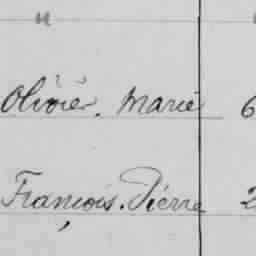 "
Olivier. Marie 6
François. Pierre 2